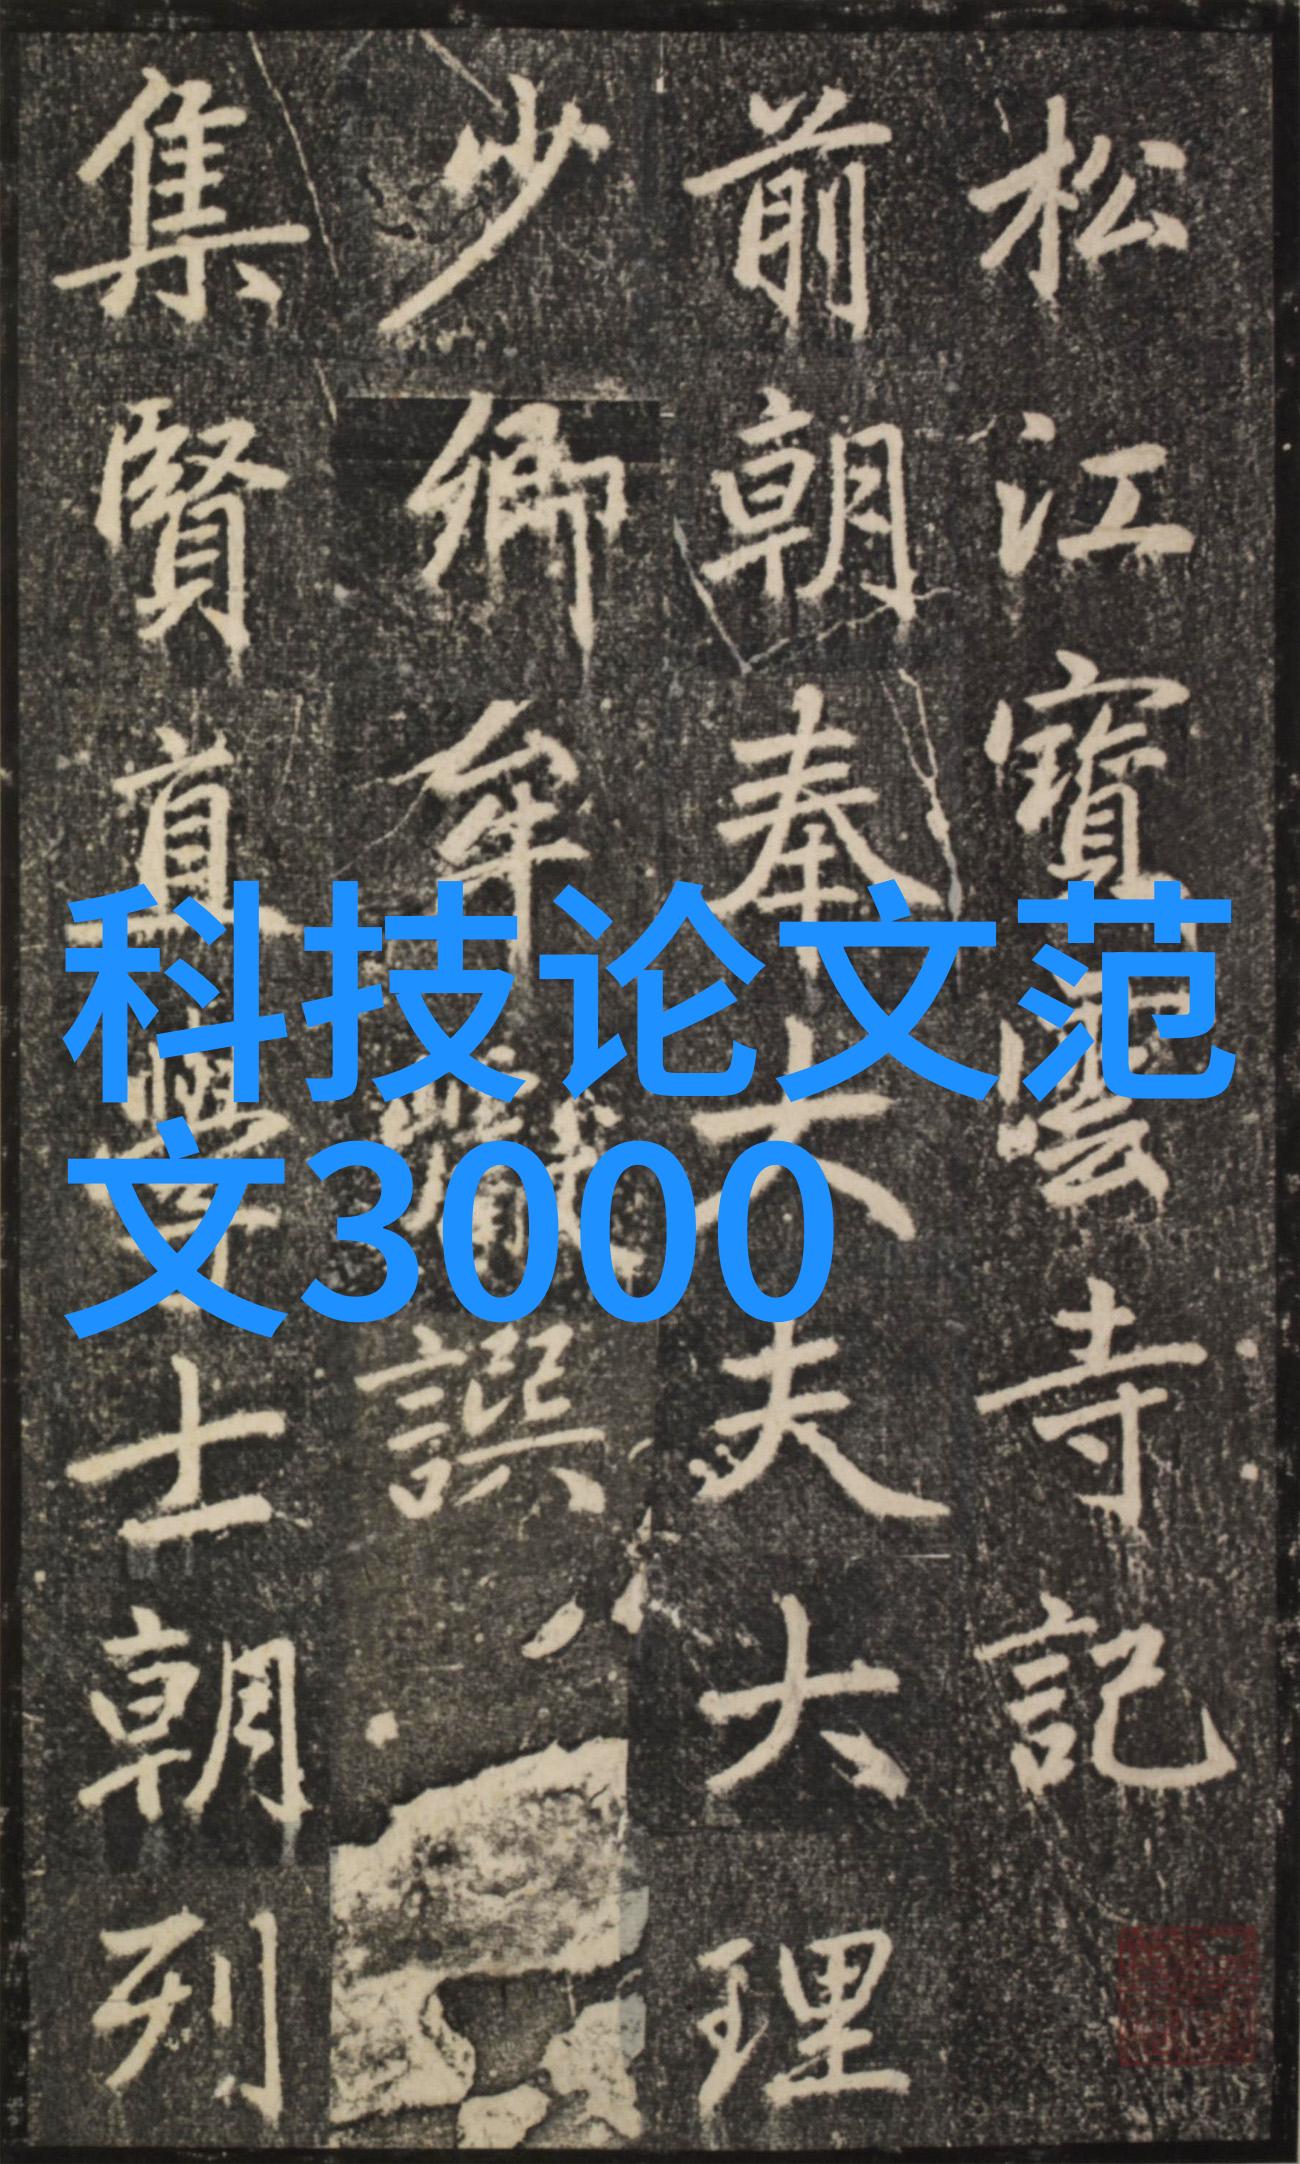 松江寶雲寺記
前朝奉大夫大理
少卿牟巘譔
集賢直學士朝列
科技论文范
文3000